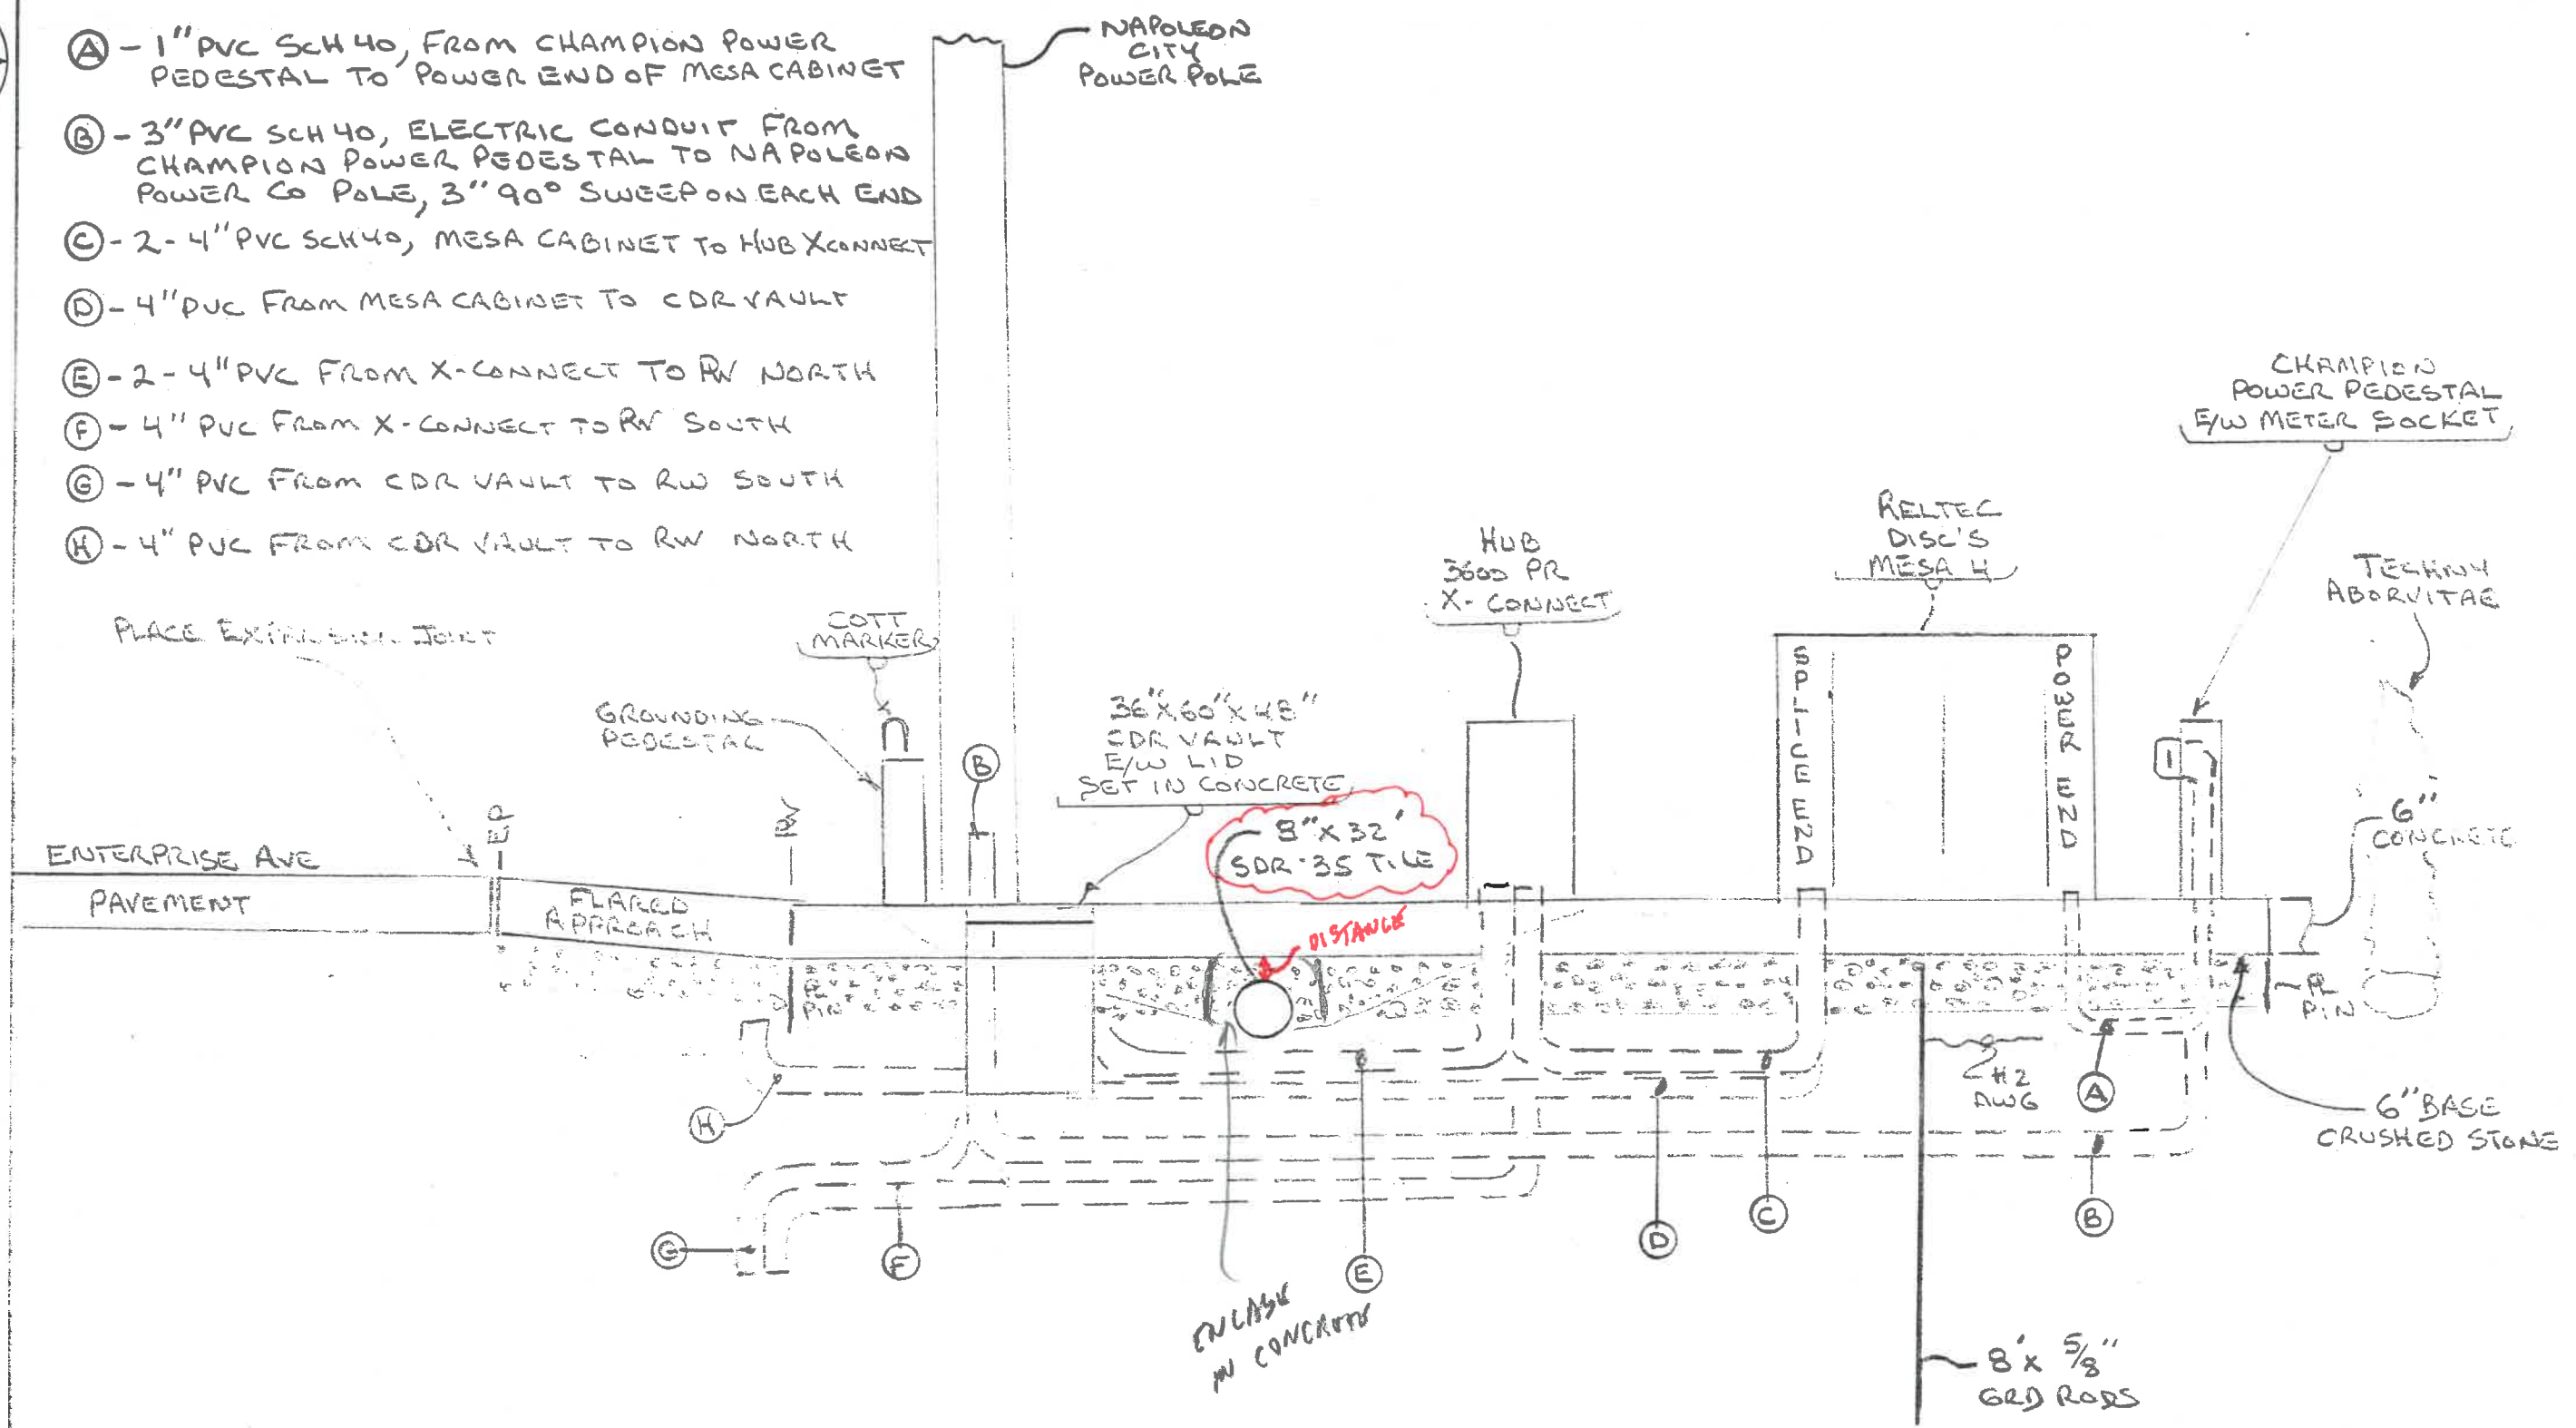 Ⓐ - 1" PVC SCH 40, FROM CHAMPION POWER
PEDESTAL TO POWER END OF MESA CABINET
Ⓑ - 3" PVC SCH 40, ELECTRIC CONDUIT FROM
CHAMPION POWER PEDESTAL TO NAPOLEON
POWER CO POLE, 3" 90° SWEEP ON EACH END
Ⓒ - 2 - 4" PVC SCH 40, MESA CABINET TO HUB XCONNECT
Ⓓ - 4" PVC FROM MESA CABINET TO CDR VAULT
Ⓔ - 2 - 4" PVC FROM X-CONNECT TO RW NORTH
Ⓕ - 4" PVC FROM X-CONNECT TO RW SOUTH
Ⓖ - 4" PVC FROM CDR VAULT TO RW SOUTH
Ⓗ - 4" PVC FROM CDR VAULT TO RW NORTH
NAPOLEON
CITY
POWER POLE
CHAMPION
POWER PEDESTAL
E/W METER SOCKET
RELTEC
DISC'S
MESA 4
HUB
3600 PR
X-CONNECT
TECHNY
ABORVITAE
PLACE EXPANSION JOINT
COTT
MARKER
GROUNDING
PEDESTAL
36" X 60" X 48"
CDR VAULT
E/W LID
SET IN CONCRETE
SPLICE END
POWER END
B
EP
RW
8" X 32'
SDR-35 TILE
6"
CONCRETE
ENTERPRISE AVE
PAVEMENT
FLARED
APPROACH
DISTANCE
PIN
PL
PIN
#2
AWG
A
H
6" BASE
CRUSHED STONE
G
F
E
D
C
B
ENCASE
IN CONCRETE
8' x 5/8"
GRD RODS